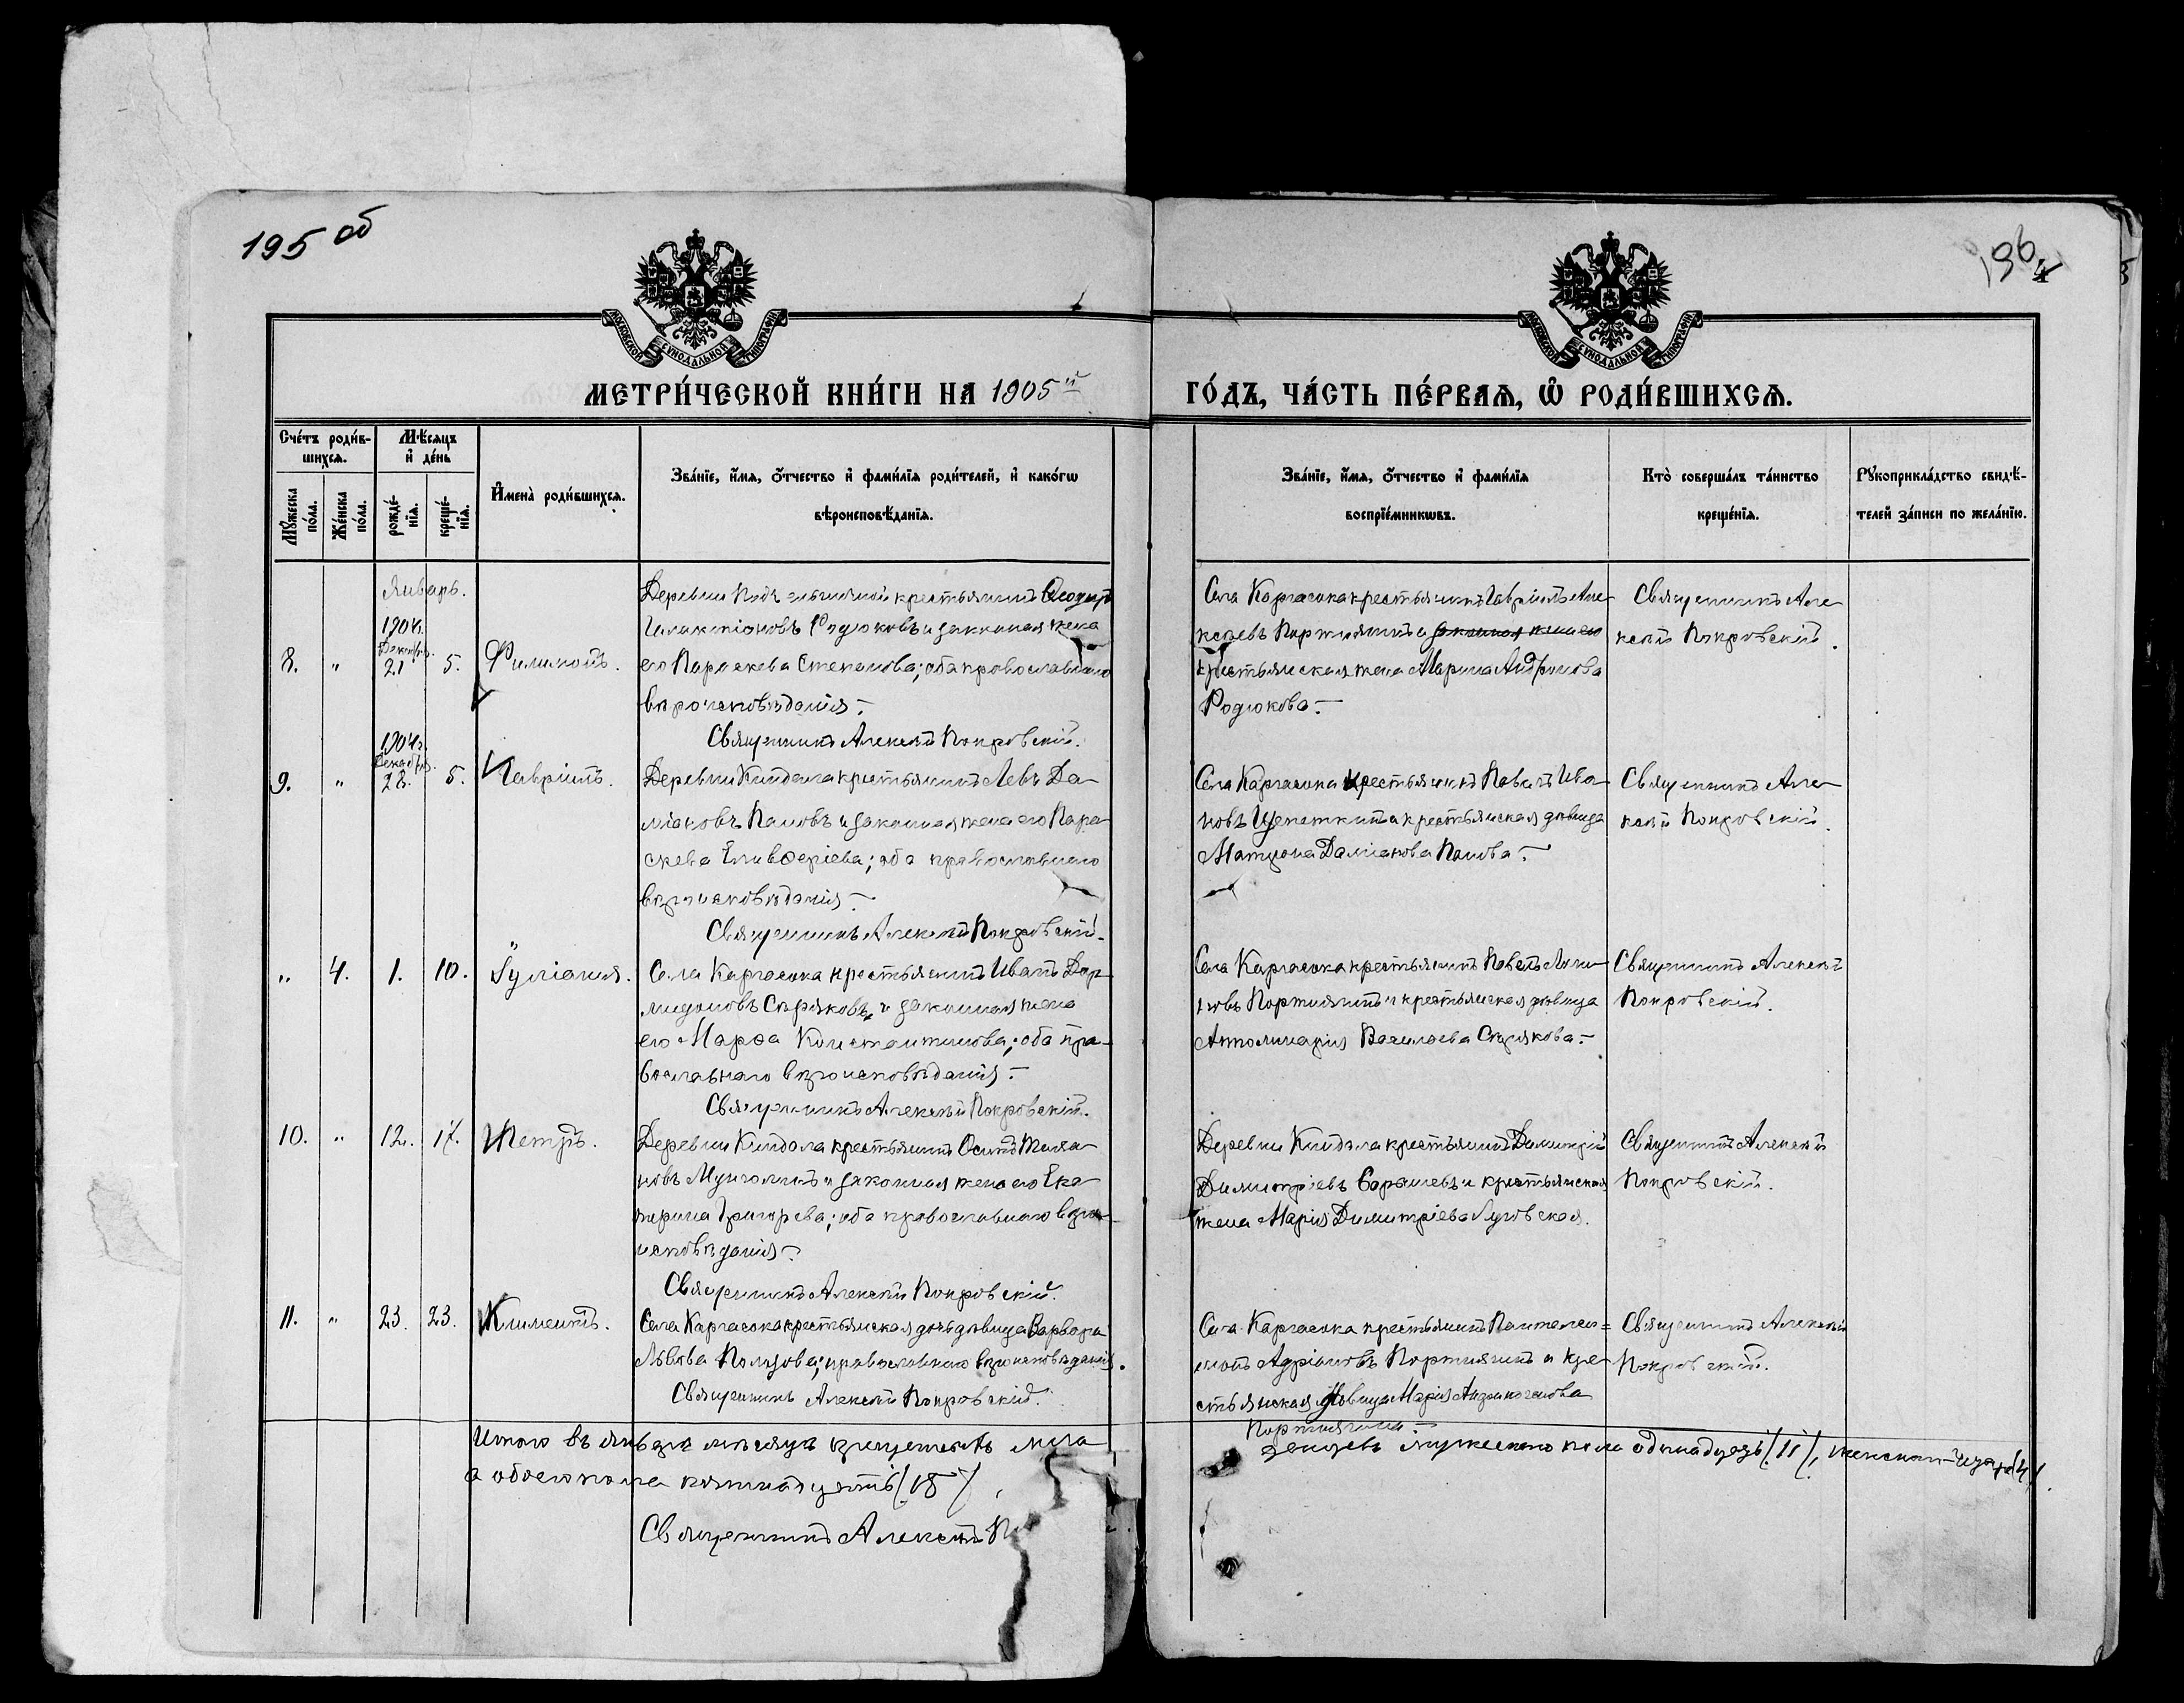 195 об
196
МОСКОВСКОЙ СѴНОДАЛЬНОЙ ТИПОГРАФІИ
МОСКОВСКОЙ СѴНОДАЛЬНОЙ ТИПОГРАФІИ
МЕТРИ́ЧЕСКОЙ КНИ́ГИ НА 1905й ГО́ДЪ, ЧА́СТЬ ПЕ́РВАѦ, Ѡ҆ РОДИ́ВШИХСѦ.
Сче́тъ роди́в-
шихсѧ.
Мѣ́сѧцъ
и҆ де́нь
Мꙋ́жеска
по́ла.
Же́нска
по́ла.
рожде́-
нїѧ.
креще́-
нїѧ.
И҆мена̀ роди́вшихсѧ.
Зва́нїе, и҆́мѧ, ѻ҆́тчество и҆ фами́лїѧ роди́телей, и҆ како́гѡ
вѣроисповѣ́данїѧ.
Зва́нїе, и҆́мѧ, ѻ҆́тчество и҆ фами́лїѧ
воспрїе́мникѡвъ.
Кто̀ соверша́лъ та́инство
креще́нїѧ.
Рꙋкоприкла́дство свидѣ́-
телей за́писи по жела́нїю.
Январь.
1904г.
Декабря.
8. " 21 5. Филимонъ.
Деревни Подъельничной крестьянинъ Ѳеодоръ
Галактіоновъ Родюковъ и законная жена
его Параскева Степанова; оба православнаго
вѣроисповѣданія.–
Священникъ Алексѣй Покровскій.
Села Каргасока крестьянинъ Гавріилъ Але-
ксѣевъ Портнягинъ и законная жена его
крестьянская жена Марина Андронова
Родюкова.–
Священникъ Але-
ксѣй Покровскій.
1904г.
Декабря.
9. " 28. 5. Гавріилъ.
Деревни Киндала крестьянинъ Левъ Да-
міановъ Пановъ и законная жена его Пара-
скева Елиѳеріева; оба православнаго
вѣроисповѣданія.–
Священникъ Алексѣй Покровскій.
Села Каргасока крестьянинъ Павелъ Ива-
новъ Щепеткинъ и крестьянская дѣвица
Матрона Даміанова Панова.–
Священникъ Але-
ксѣй Покровскій.
" 4. 1. 10. Іуліанія.
Села Каргасока крестьянинъ Иванъ Дор-
мидоновъ Сѣряковъ, и законная жена
его Марѳа Константинова; оба пра-
вославнаго вѣроисповѣданія.–
Священникъ Алексѣй Покровскій.
Села Каргасока крестьянинъ Павелъ
Портнягинъ и крестьянская дѣвица
Апполинарія Васильева Сѣрякова.–
Священникъ Алексѣй
Покровскій.
10. " 12. 17. Петръ.
Деревни Киндала крестьянинъ Осипъ
Мунголинъ и законная жена его Ека-
терина Григорьева; оба православнаго вѣро-
исповѣданія.–
Священникъ Алексѣй Покровскій.
Деревни Киндала крестьянинъ Димитрій
Димитріевъ Барышевъ и крестьянская
жена Марія Димитріева Луговская.
Священникъ Алексѣй
Покровскій.
11. " 23. 23. Климентъ.
Села Каргасока крестьянская дочь дѣвица Варвара
Львова православнаго вѣроисповѣданія.
Священникъ Алексѣй Покровскій.
Села Каргасока крестьянинъ Пантелеи=
монъ Адріановъ Портнягинъ и кре-
стьянская дѣвица Марія
Портнягина.–
Священникъ Алексѣй
Покровскій.
Итого въ январѣ мѣсяцѣ крещено мла-
денцевъ мужескаго пола одинадцать /11/, женскаго – четыре /4/.
а обоего пола пятнадцать /15/.
Священникъ Алексѣй